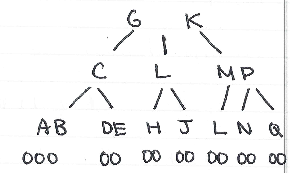 G K
C L MP
AB DE H J L N Q
000 00 00 00 00 00 00